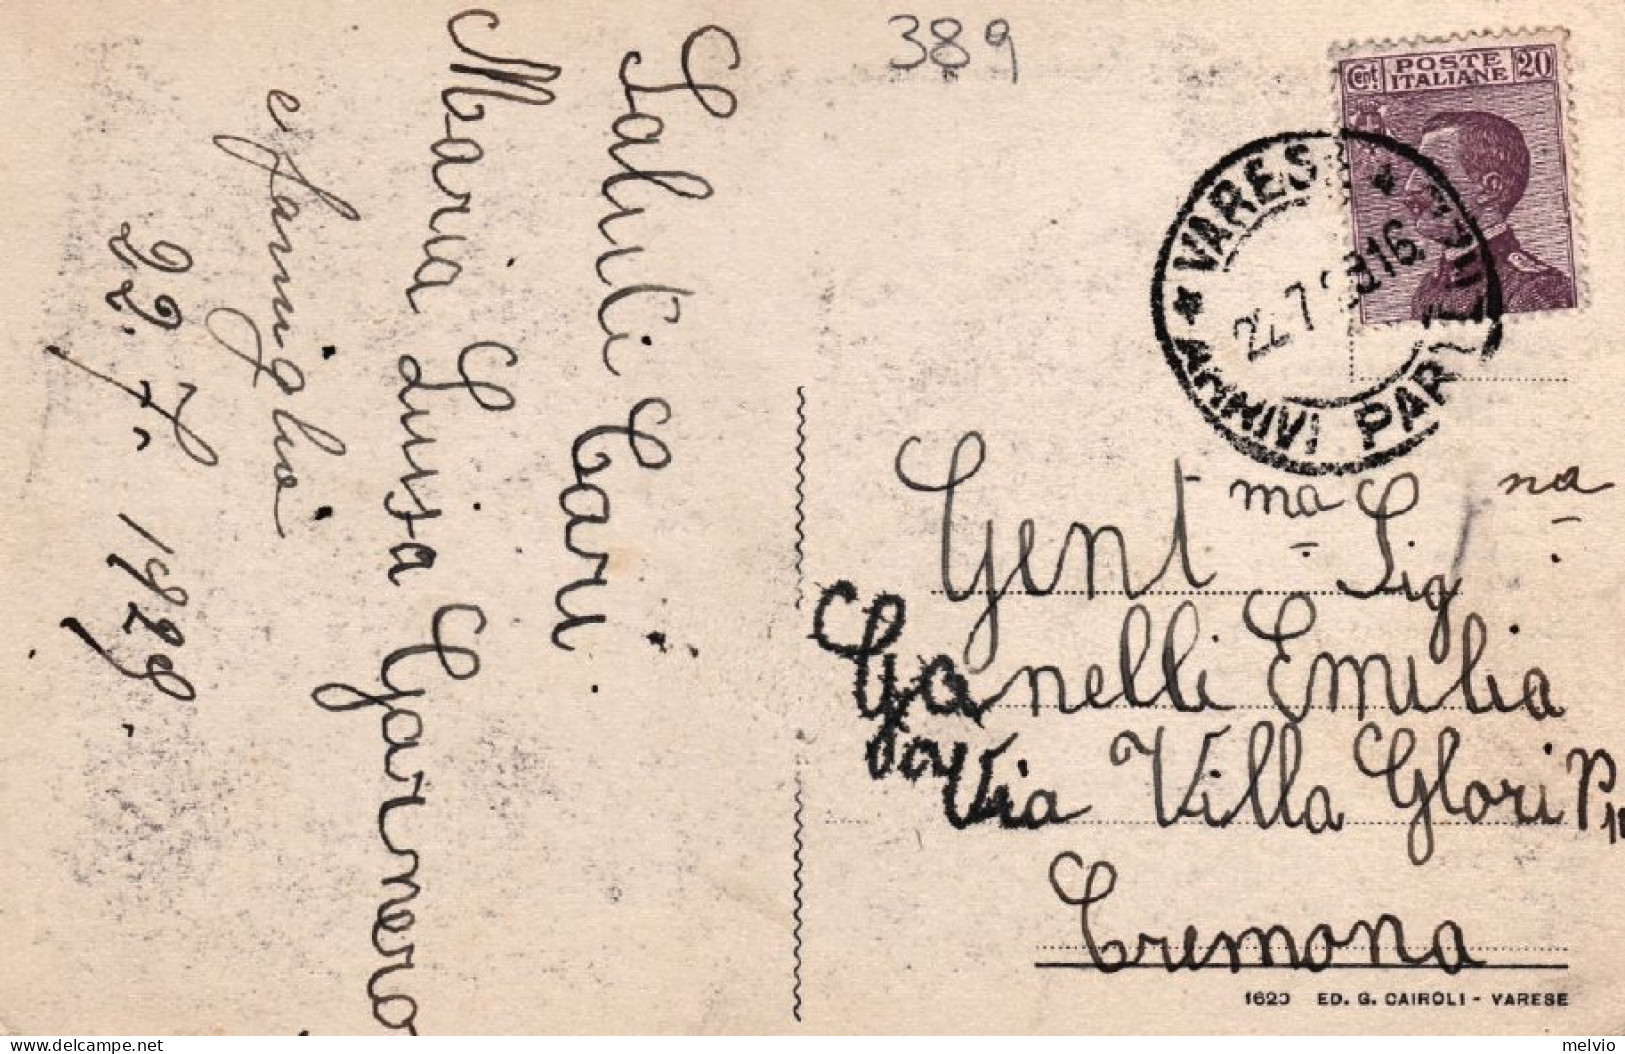 389
Saluti Cari
Maria Luisa Garnero
e famiglia
22. 7. 1928.
Cent. POSTE ITALIANE 20
VARESE
22.7.28 16
ARRIVI PARTENZE
Gent ma Sig na
Ganelli Emilia
Via Villa Glori
Cremona
1620 ED. G. CAIROLI - VARESE
melvio